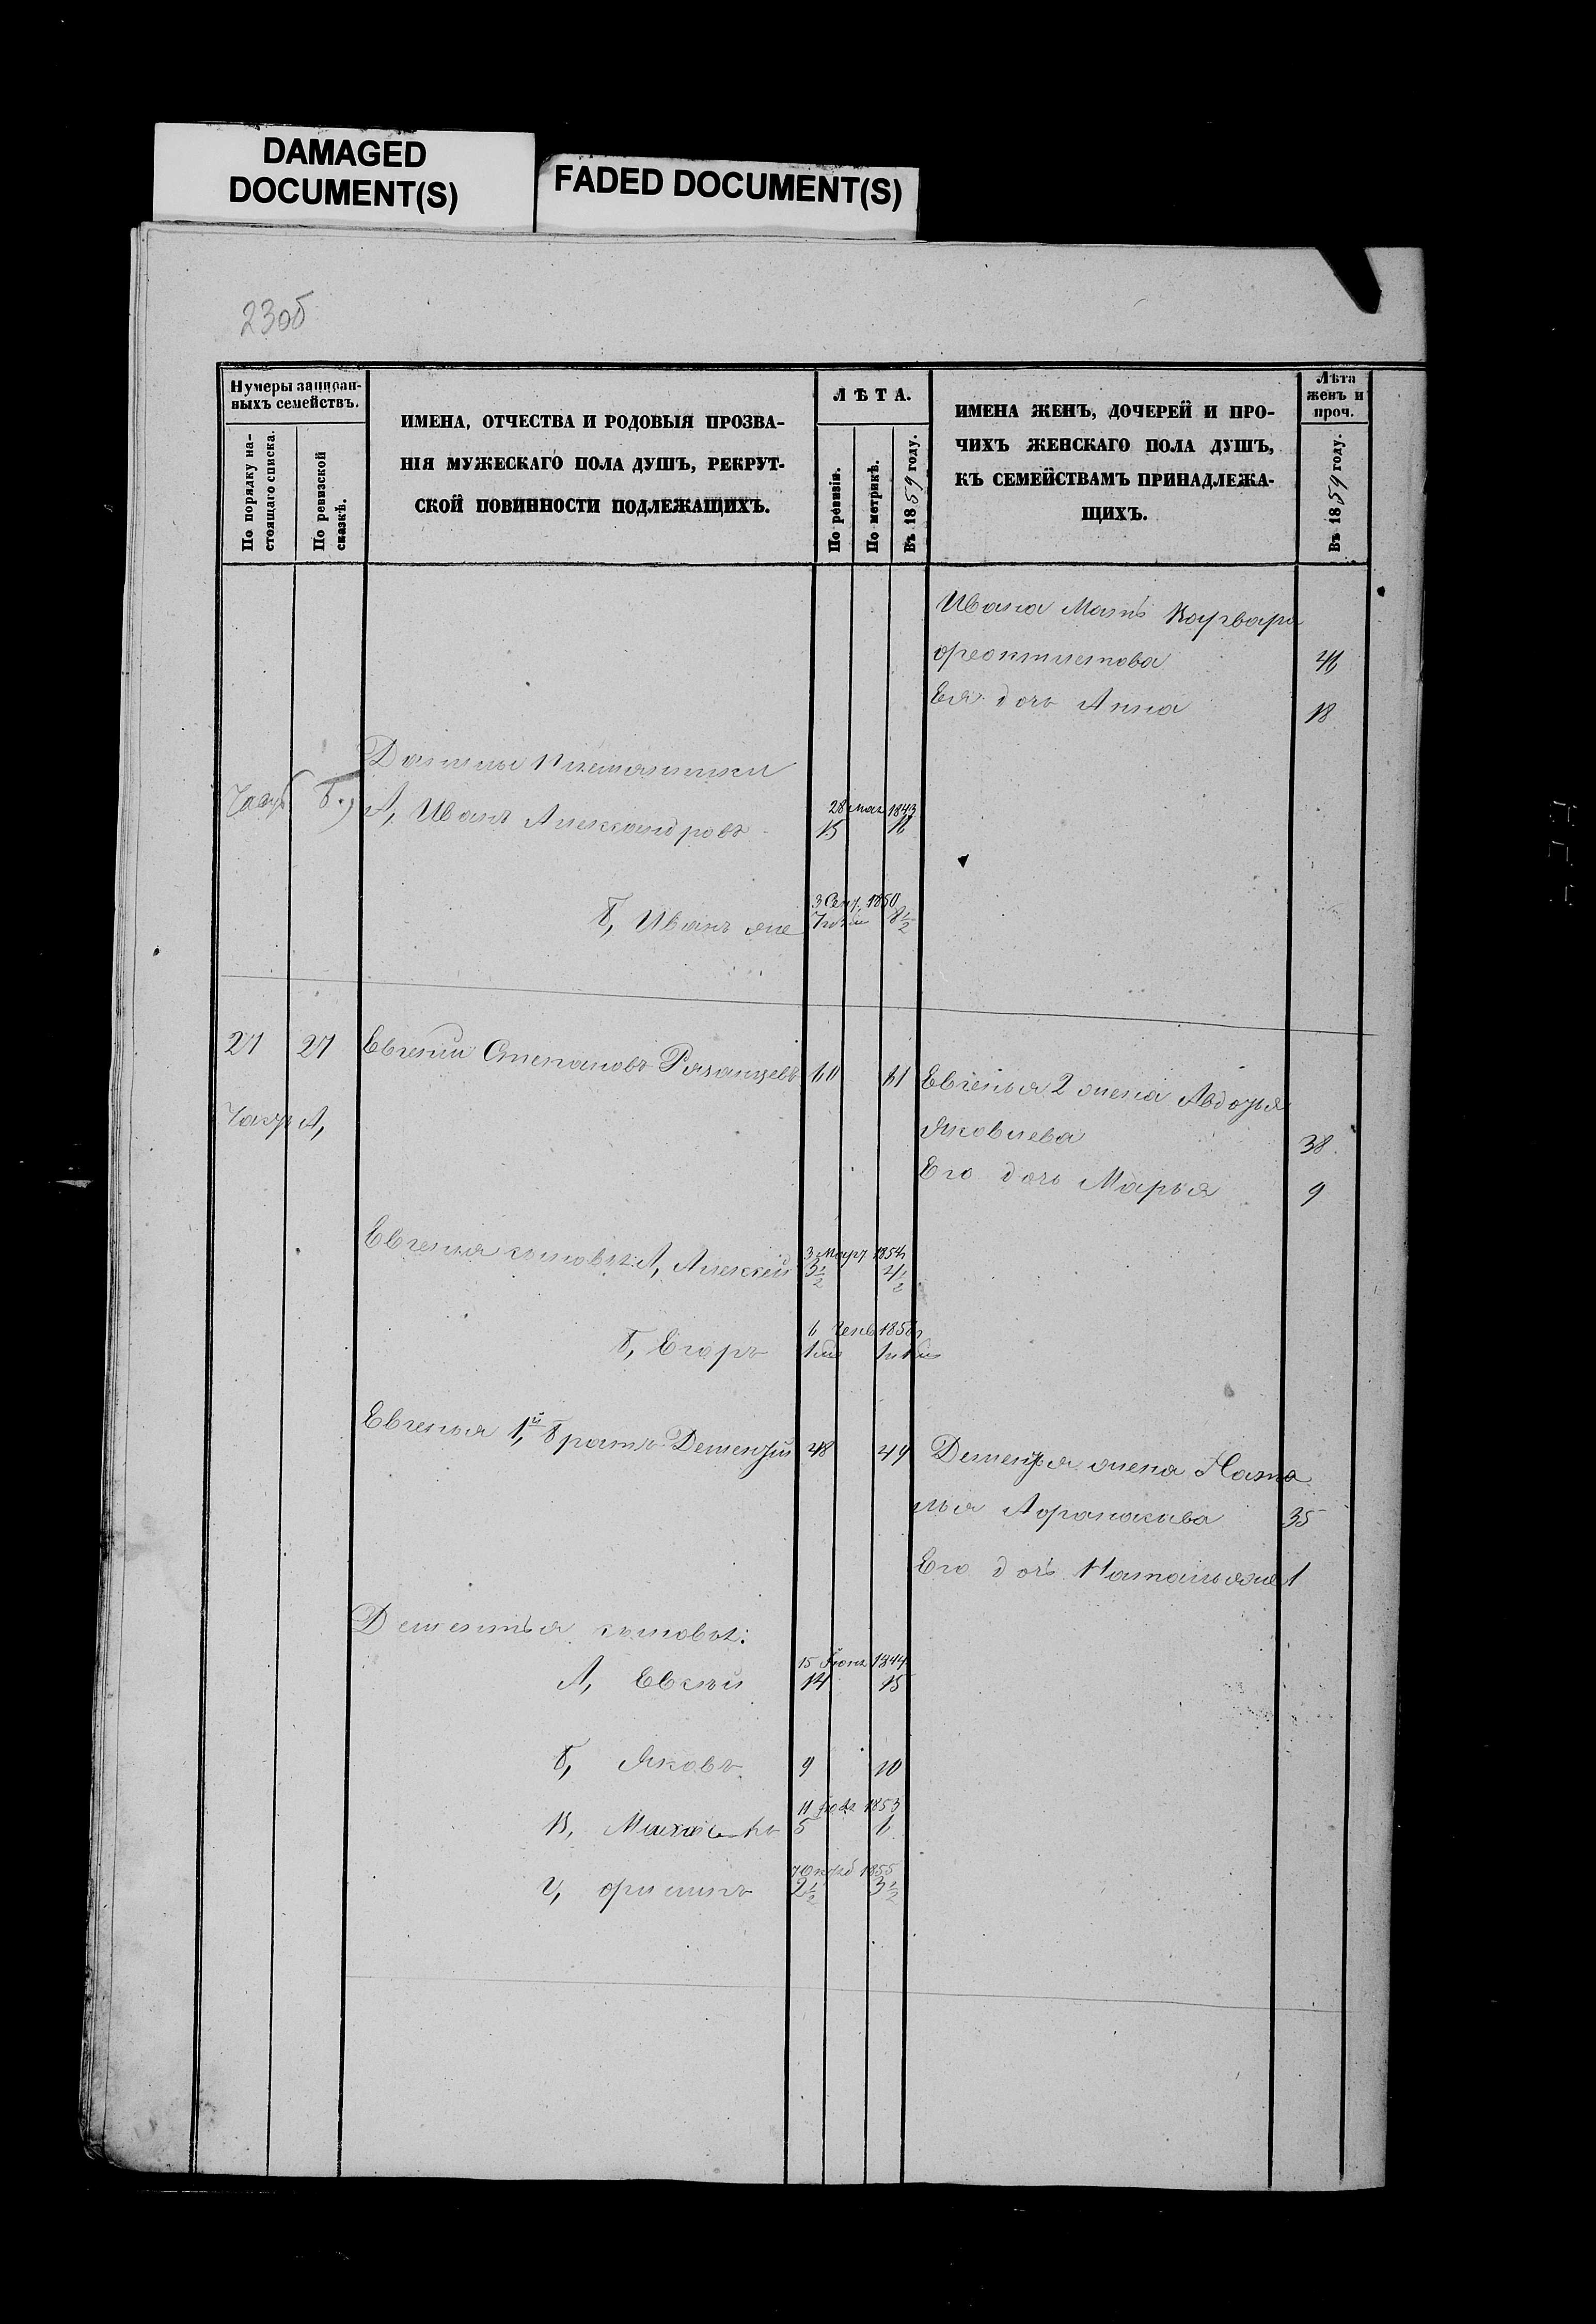 DAMAGED
DOCUMENT(S)
FADED DOCUMENT(S)
23об
Нумеры записан-
ныхъ семействъ.
По порядку на-
стоящаго списка.
По ревизской
сказкѣ.
ИМЕНА, ОТЧЕСТВА И РОДОВЫЯ ПРОЗВА-
НІЯ МУЖЕСКАГО ПОЛА ДУШЪ, РЕКРУТ-
СКОЙ ПОВИННОСТИ ПОДЛЕЖАЩИХЪ.
ЛѢТА.
По ревизіи.
По метрикѣ.
Въ 1859 году.
ИМЕНА ЖЕНЪ, ДОЧЕРЕЙ И ПРО-
ЧИХЪ ЖЕНСКАГО ПОЛА ДУШЪ,
КЪ СЕМЕЙСТВАМЪ ПРИНАДЛЕЖА-
ЩИХЪ.
Лѣта
женъ и
проч.
Въ 1859 году.
Ивана Мать Варвара
Феоктистова 46
Ея дочь Анна 18
племянники
Б.) А, Иванъ Александровъ 28 мая 1843 15 16
Б, Иванъ же 3 Сент. 1850 8½
27 27 Евгений Степановъ Рязанцевъ 60 61 Евгенья 2 жена Авдотья
А, Яковлева 38
Его дочь Марья 9
Евгенья сыновья: А, Алексей 3 Март 1854 3½ 4½
Б, Егоръ 6 1858
Евгенья 1й братъ Дементий 48 49 Дементья жена Ната
лья 35
Его дочь Наталья же 1
Дементья сыновья:
А, Евсей 15 Июня 1844 14 15
Б, Яковъ 9 10
В, 11 1853 5 6
Г, 7 Октяб 1855 2½ 3½